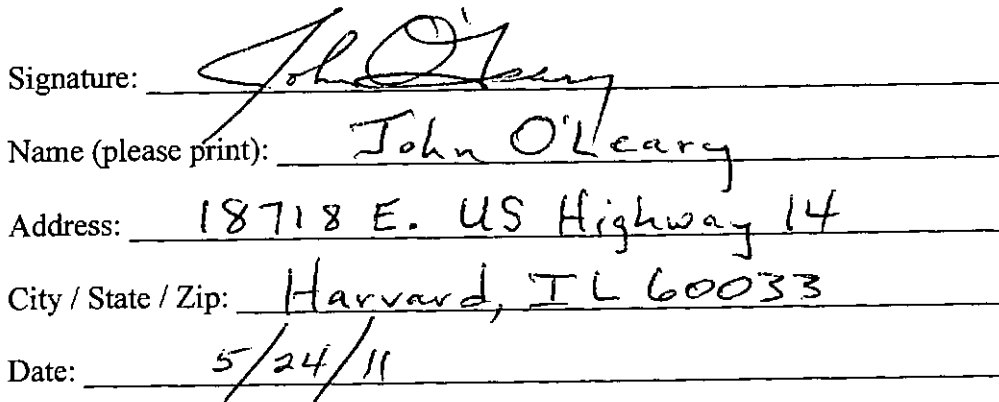 Signature: John O'Leary
Name (please print): John O'Leary
Address: 18718 E. US Highway 14
City / State / Zip: Harvard, IL 60033
Date: 5/24/11